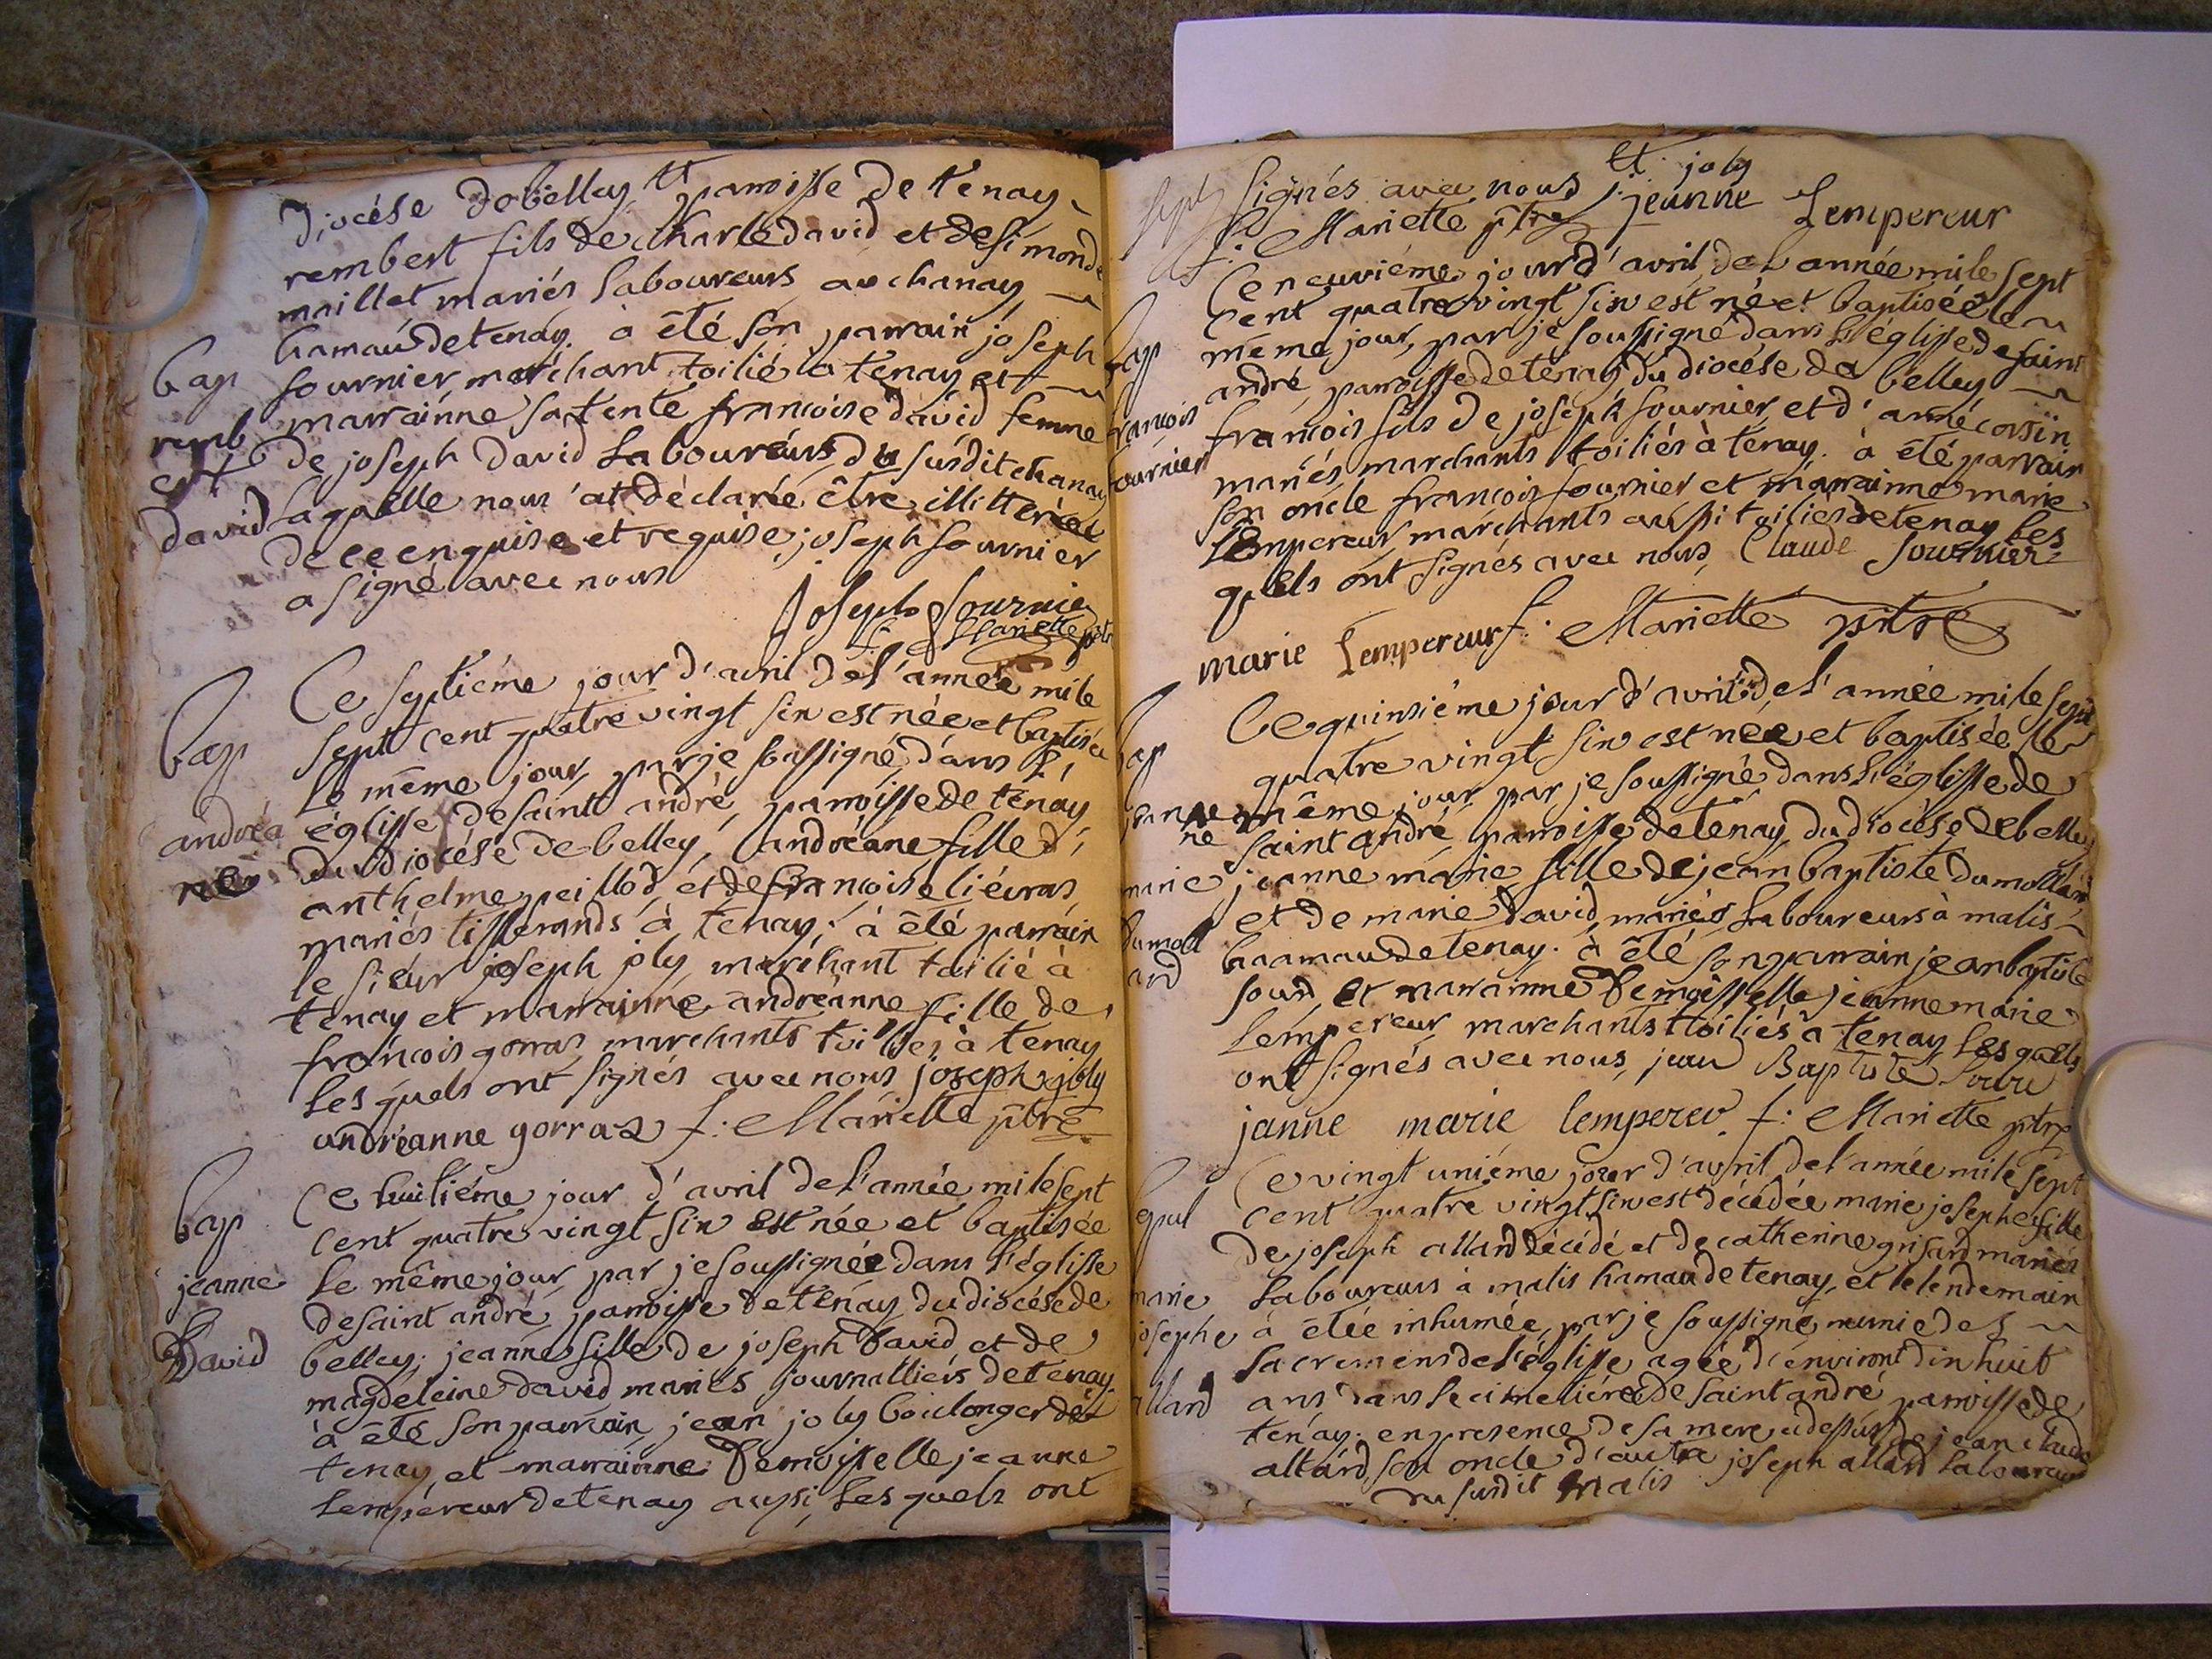 Diocése de belley et parroisse de tenay
rembert fils de charle david et de simonde
maillet mariés laboureurs au chanay
bap
hamau de tenay. à êté son parrain joseph
fournier marchant toilié a tenay et
remb
marrainne sa tente francoise david femme
ert
de joseph David laboureurs du susdit chanay
david
laquelle nous at déclarée être illitterée
de ce enquise et requise joseph fournier
a signé avec nous
Joseph fournier
f: Mariette ptre
Ce septiéme jour d'avril de l'année mile
bap
sept cent quatre vingt six est née et baptisée
le même jour par je soussigné dans l'
andréa
églisse de saint andré, parroisse de tenay
ne
du diocése de belley, andréane fille d'
anthelme peillod et de francoise liévras
mariés tisserands à tenay; à êté parrain
le sieur joseph joly marchant toilié à
tenay et marrainne andréanne fille de
francois gorras marchants toiliés à tenay
lesquels ont signés avec nous joseph joly
andréanne gorraz f: Mariette ptre
Ce huitiéme jour d'avril de l'année mile sept
bap
cent quatre vingt six est née et baptisée
jeanne
le même jour par je soussignée dans l'églisse
de saint andré, parroisse de tenay du diocése de
David
belley; jeanne fille de joseph David et de
magdeleine david mariés journalliérs de tenay.
à êté son parrain jean joly boulonger de
tenay et marrainne Demoisselle jeanne
lempéreur de tenay aussi, lesquels ont
signés avec nous et. joly
f: Mariette ptre jeanne Lempereur
Ce neuviéme jour d'avril de l'année mile sept
cent quatre vingt six est né et baptisée le
bap
même jour, par je soussigné dans l'églisse de saint
andré, parroisse de tenay du diocése de belley
francois
francois fils de joseph fournier et d'anne corsin
fournier
mariés, marchants toiliés à tenay. à êté parrain
son oncle francois fournier et marrainne marie
lempereur marchants aussi toiliés de tenay les
quels ont signés avec nous, Claude fournier
marie Lempereur f: Mariette prtre
Ce quinsiéme jour d'avril de l'année mile sept
bap
quatre vingt six est née et baptisée le
jean
même jour par je soussigné dans l'églisse de
ne
saint andré parroisse de tenay, du diocèse de belley
marie
jeanne marie fille de jean baptiste dumollard
et de marie David, mariés, laboureurs à malis
dumoll
haamau de tenay. à êté son parrain jean baptiste
ard
four et marrainne Demoisselle jeanne marie
Lempereur marchants toiliés a tenay lesquels
ont signés avec nous, jean Baptiste
janne marie lempereu f: Mariette ptre
Ce vingt uniéme jour d'avril de l'année mile sept
sepul
cent quatre vingt six est décédée marie josephe fille
de joseph allard décédé et de catherine grisard mariés
marie
laboureurs à malis hamau de tenay, et le lendemain
josephe
à êtée inhumée, par je soussigné munie des
sacremens de l'églisse agée d'environt dix huit
allard
ans dans le cimetiére de saint andré parroisse de
tenay: en presence de sa mere cidessus de jean claude
allard, son oncle d'autre joseph allard laboureurs
du susdit malis